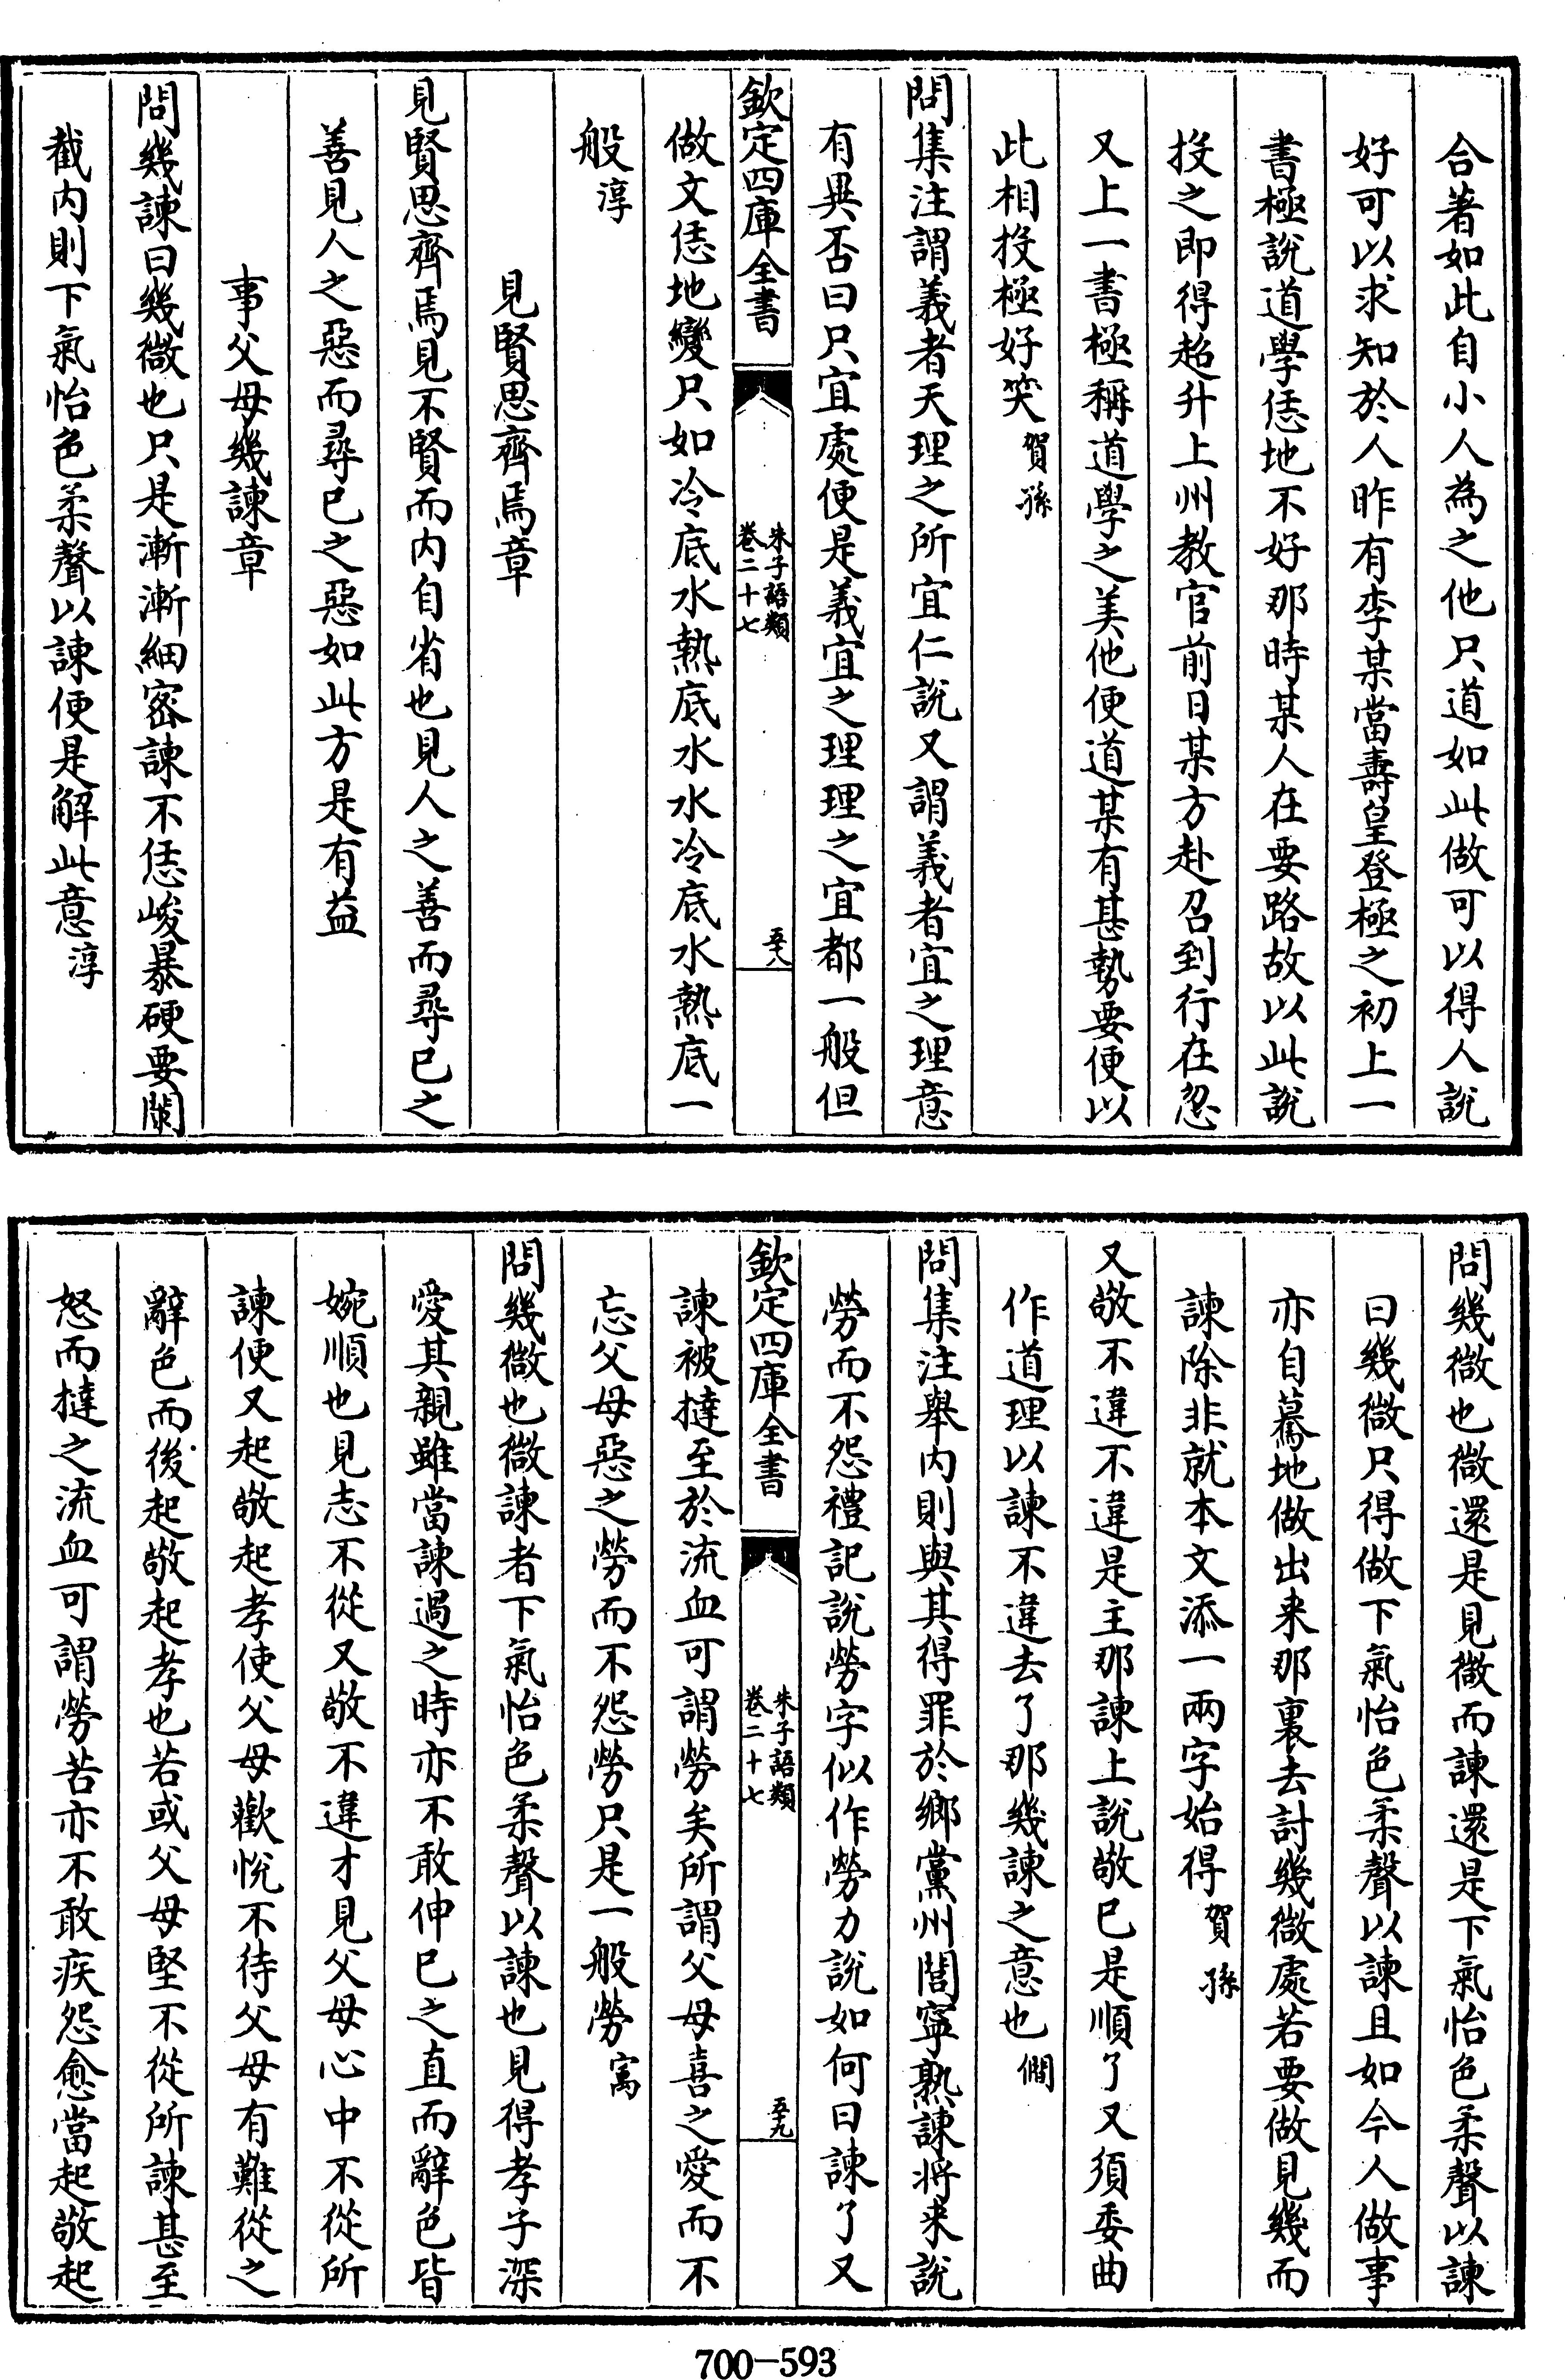 合著如此自小人為之他只道如此做可以得人說
好可以求知於人昨有李某當壽皇登極之初上一
書極說道學恁地不好那時某人在要路故以此說
投之即得超升上州教官前日某方赴召到行在忽
又上一書極稱道學之美他便道某有甚勢要便以
此相投極好笑賀孫
問集注謂義者天理之所宜仁說又謂義者宜之理意
有異否曰只宜處便是義宜之理理之宜都一般但
欽定四庫全書
朱子語類
卷二十七
五十八
做文恁地變只如冷底水熱底水水冷底水熱底一
般淳
見賢思齊焉章
見賢思齊焉見不賢而內自省也見人之善而尋已之
善見人之惡而尋已之惡如此方是有益
事父母幾諫章
問幾諫曰幾微也只是漸漸細密諫不恁峻暴硬要闌
截內則下氣怡色柔聲以諫便是解此意淳
問幾微也微還是見微而諫還是下氣怡色柔聲以諫
曰幾微只得做下氣怡色柔聲以諫且如今人做事
亦自驀地做出来那裏去討幾微處若要做見幾而
諫除非就本文添一兩字始得賀孫
又敬不違不違是主那諫上說敬已是順了又須委曲
作道理以諫不違去了那幾諫之意也僩
問集注舉內則與其得罪於鄉黨州閭寧熟諫將来說
勞而不怨禮記說勞字似作勞力說如何曰諫了又
欽定四庫全書
朱子語類
卷二十七
五十九
諫被撻至於流血可謂勞矣所謂父母喜之愛而不
忘父母惡之勞而不怨勞只是一般勞㝢
問幾微也微諫者下氣怡色柔聲以諫也見得孝子深
愛其親雖當諫過之時亦不敢伸已之直而辭色皆
婉順也見志不從又敬不違才見父母心中不從所
諫便又起敬起孝使父母歡悅不待父母有難從之
辭色而後起敬起孝也若或父母堅不從所諫甚至
怒而撻之流血可謂勞苦亦不敢疾怨愈當起敬起
700-593